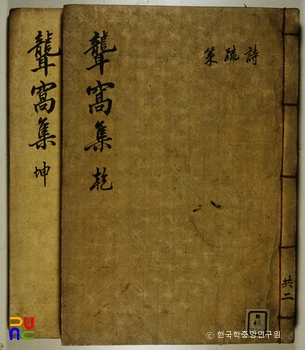 聾窩集 乾
詩疏策
共二
聾窩集 坤
© 한국학중앙연구원